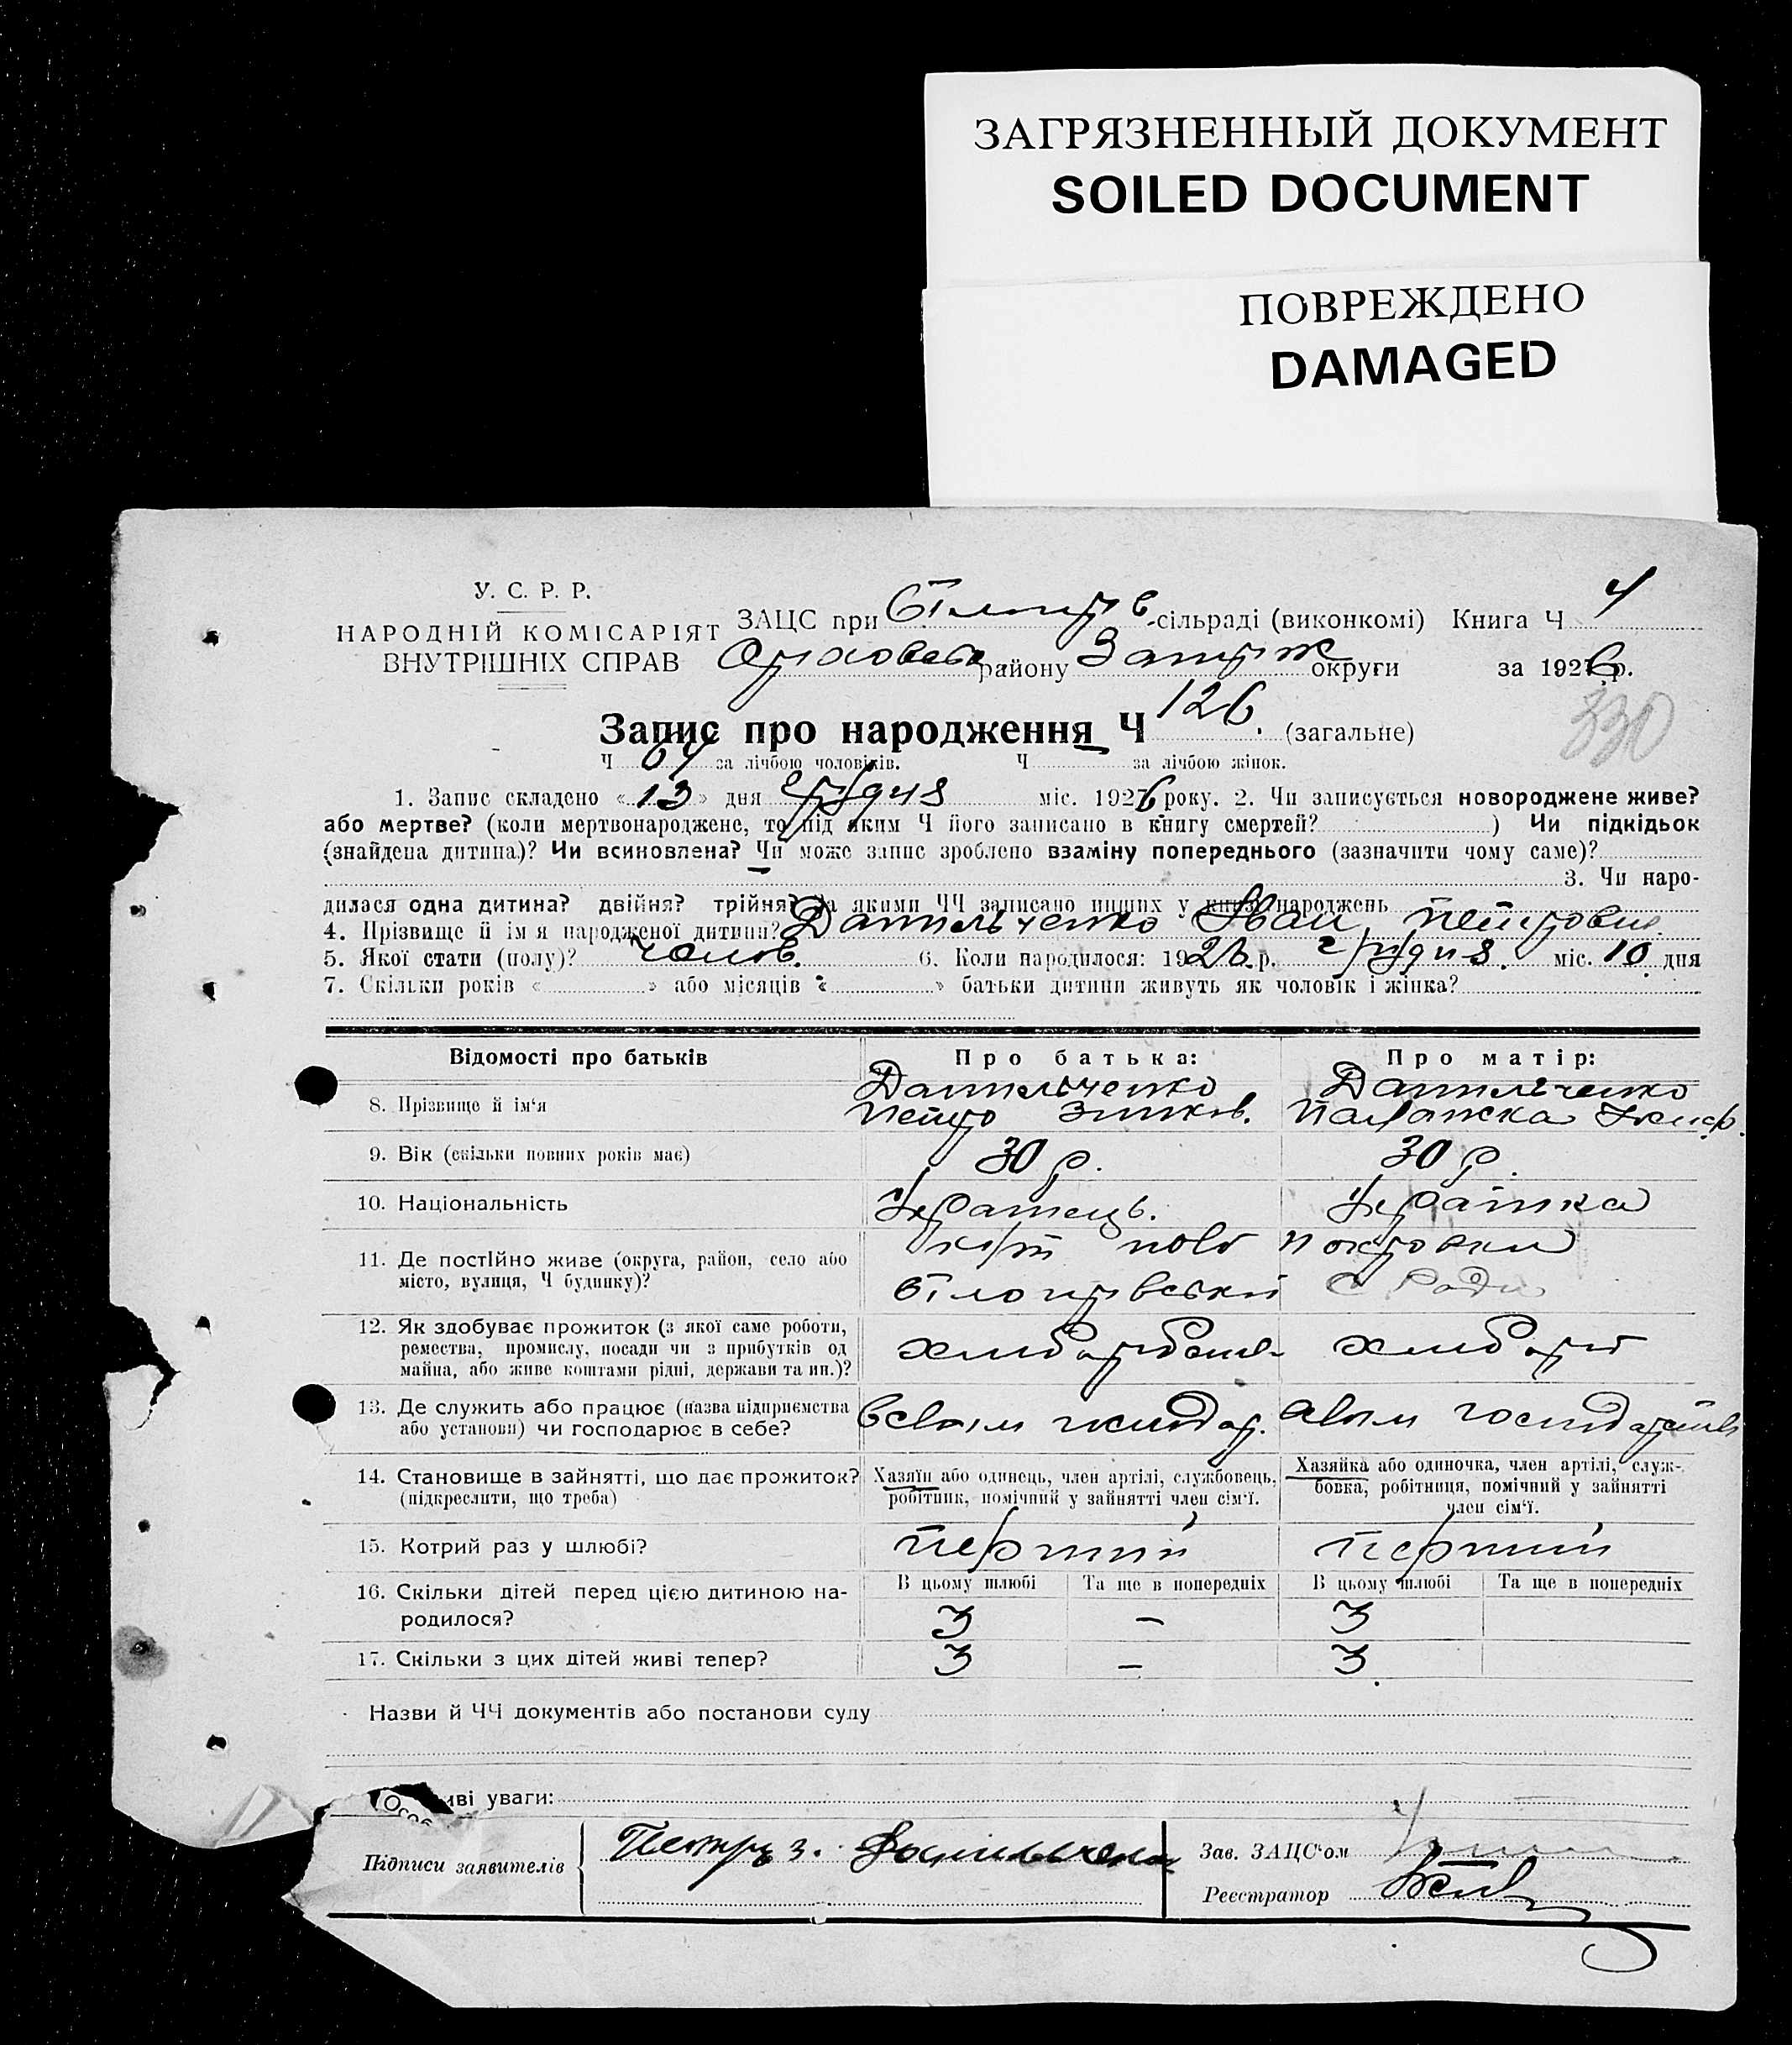 ЗАГРЯЗНЕННЫЙ ДОКУМЕНТ
SOILED DOCUMENT
ПОВРЕЖДЕНО
DAMAGED
У. С. Р. Р.
НАРОДНІЙ КОМІСАРІЯТ
ВНУТРІШНІХ СПРАВ
ЗАЦС при -сільраді (виконкомі) Книга Ч 4
району Запріж округи за 1926 р.
330
Запис про народження Ч 126. (загальне)
Ч 64 за лічбою чоловіків. Ч за лічбою жінок.
1. Запис складено «13» дня грудня міс. 1926 року. 2. Чи записується новороджене живе?
або мертве? (коли мертвонароджене, то під яким Ч його записано в книгу смертей? ) Чи підкідьок
(знайдена дитина)? Чи всиновлена? Чи може запис зроблено взаміну попереднього (зазначити чому саме)?
3. Чи наро-
дилася одна дитина? двійня? трійня? За якими ЧЧ записано инших у книзі народжень
4. Прізвище й ім'я народженої дитини? Данильченко Іван Петрович.
5. Якої стати (полу)? чолов. 6. Коли народилося: 1926 р. грудня. міс. 10. дня
7. Скільки років « » або місяців « » батьки дитини живуть як чоловік і жінка?
Відомості про батьків Про батька: Про матір:
8. Прізвище й ім'я
Данильченко Данильченко
Петро Зінков. Палажка
9. Вік (скільки повних років має) 30 р. 30 р.
10. Національність Українець. Українка
11. Де постійно живе (округа, район, село або
місто, вулиця, Ч будинку)?
хут Ново Покровка
Білогирвський С Ради
12. Як здобуває прожиток (з якої саме роботи,
ремества, промислу, посади чи з прибутків од
майна, або живе коштами рідні, держави та ин.)?
хлибороб
13. Де служить або працює (назва підприємства
або установи) чи господарює в себе?
всвоім господар. своім господарстві
14. Становище в зайнятті, що дає прожиток?
(підкреслити, що треба)
Хазяїн або одинець, член артілі, службовець,
робітник, помічний у зайнятті член сім'ї.
Хазяйка або одиночка, член артілі, служ-
бовка, робітниця, помічний у зайнятті
член сім'ї.
15. Котрий раз у шлюбі? перший перший
16. Скільки дітей перед цією дитиною на-
родилося?
В цьому шлюбі Та ще в попередніх В цьому шлюбі Та ще в попередніх
3 – 3
17. Скільки з цих дітей живі тепер? 3 – 3
Назви й ЧЧ документів або постанови суду
иві уваги:
Підписи заявителів Петръ З. Данильченко
Зав. ЗАЦС'ом
Реєстратор